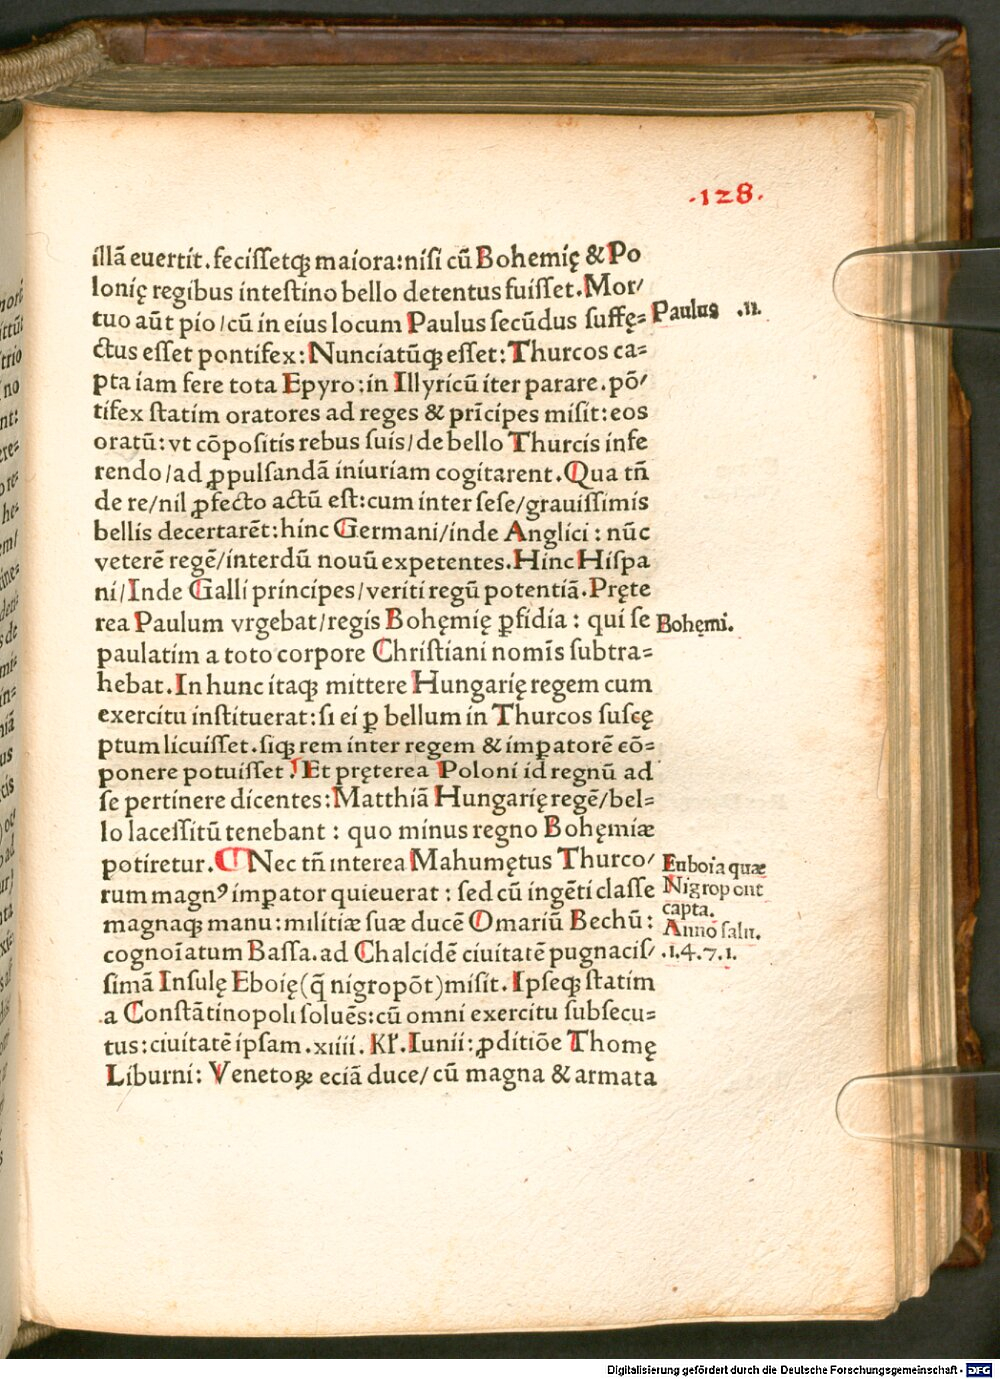 .128.
illā euertit. feciſſetqꝫ maiora: niſi cū Bohemię & Po
lonię regibus inteſtino bello detentus fuiſſet. Mor/
tuo aūt pio / cū in eius locum Paulus ſecūdus ſuffę=
Paulus .II.
ctus eſſet pontifex: Nunciatūqꝫ eſſet: Thurcos ca=
pta iam fere tota Epyro: in Illyricū iter parare. pō/
tifex ſtatim oratores ad reges & prīcipes miſit: eos
oratū: vt cōpoſitis rebus ſuis / de bello Thurcis infe
rendo / ad ꝓpulſandā iniuriam cogitarent. Qua tñ
de re / nil ꝓfecto actū eſt: cum inter ſeſe / grauiſſimis
bellis decertarēt: hinc Germani / inde Anglici: nūc
veterē regē / interdū nouū expetentes. Hinc Hiſpa
ni / Inde Galli principes / veriti regū potentiā. Pręte
rea Paulum vrgebat / regis Bohęmię ꝑfidia: qui ſe
Bohęmi.
paulatim a toto corpore Chriſtiani nomīs ſubtra=
hebat. In hunc itaqꝫ mittere Hungarię regem cum
exercitu inſtituerat: ſi ei ꝑ bellum in Thurcos ſuſcę
ptum licuiſſet. ſiqꝫ rem inter regem & imꝑatorē cō=
ponere potuiſſet! Et pręterea Poloni id regnū ad
ſe pertinere dicentes: Matthiā Hungarię regē / bel=
lo laceſſitū tenebant: quo minus regno Bohęmiæ
potiretur. ¶ Nec tñ interea Mahumętus Thurco/
rum magnꝰ imꝑator quieuerat: ſed cū ingēti claſſe
magnaqꝫ manu: militiæ ſuæ ducē Omariū Bechū:
cognoīatum Baſſa. ad Chalcidē ciuitatē pugnaciſ/
ſimā Inſulę Eboię (q̄ nigropōt) miſit. Ipſeqꝫ ſtatim
Euboia quæ
Nigropont
capta.
Anno ſalu.
.1.4.7.1.
a Conſtātinopoli ſoluēs: cū omni exercitu ſubſecu=
tus: ciuitatē ipſam. xiiii. Kl'. Iunii: ꝓditiōe Thomę
Liburni: Venetoꝝ eciā duce / cū magna & armata
Digitalisierung gefördert durch die Deutsche Forschungsgemeinschaft - DFG